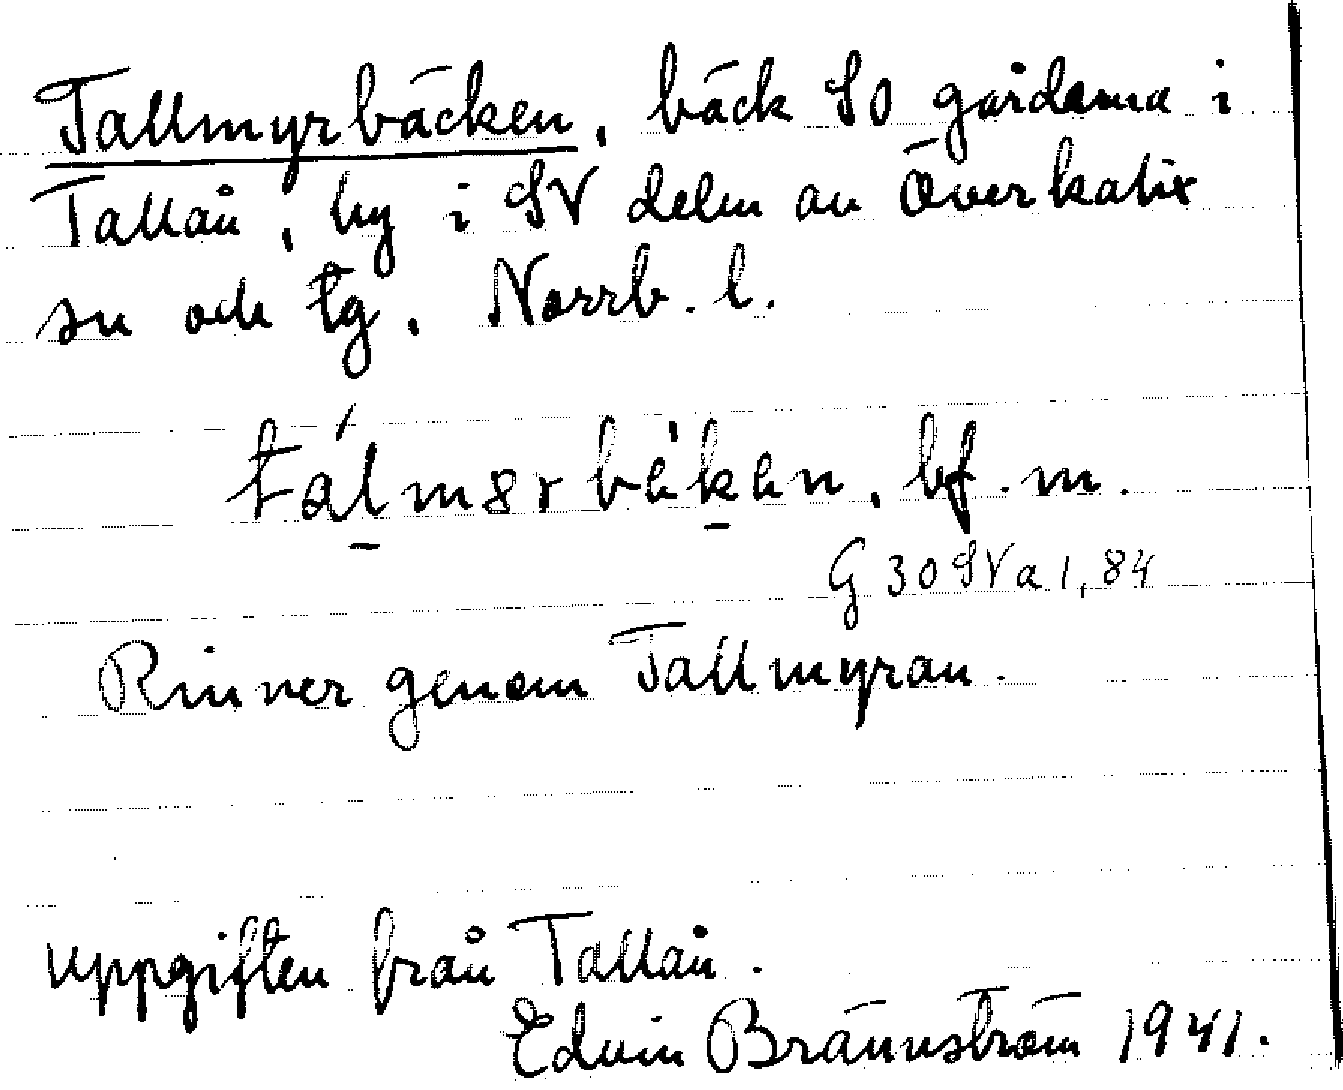 Tallmyrbäcken, bäck SO gårdarna i
Tallån, by i SV delen av Överkalix
sn och tg, Norrb. l.
bf. m.
G 30 SV a 1, 84
Rinner genom Tallmyran.
uppgiften från Tallån.
Edvin Brännström 1941.